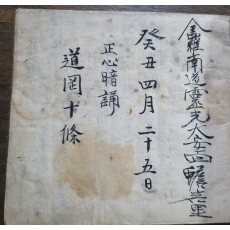 全羅南道靈光大安面
癸丑四月二十五日
正心暗誦
道岡十條